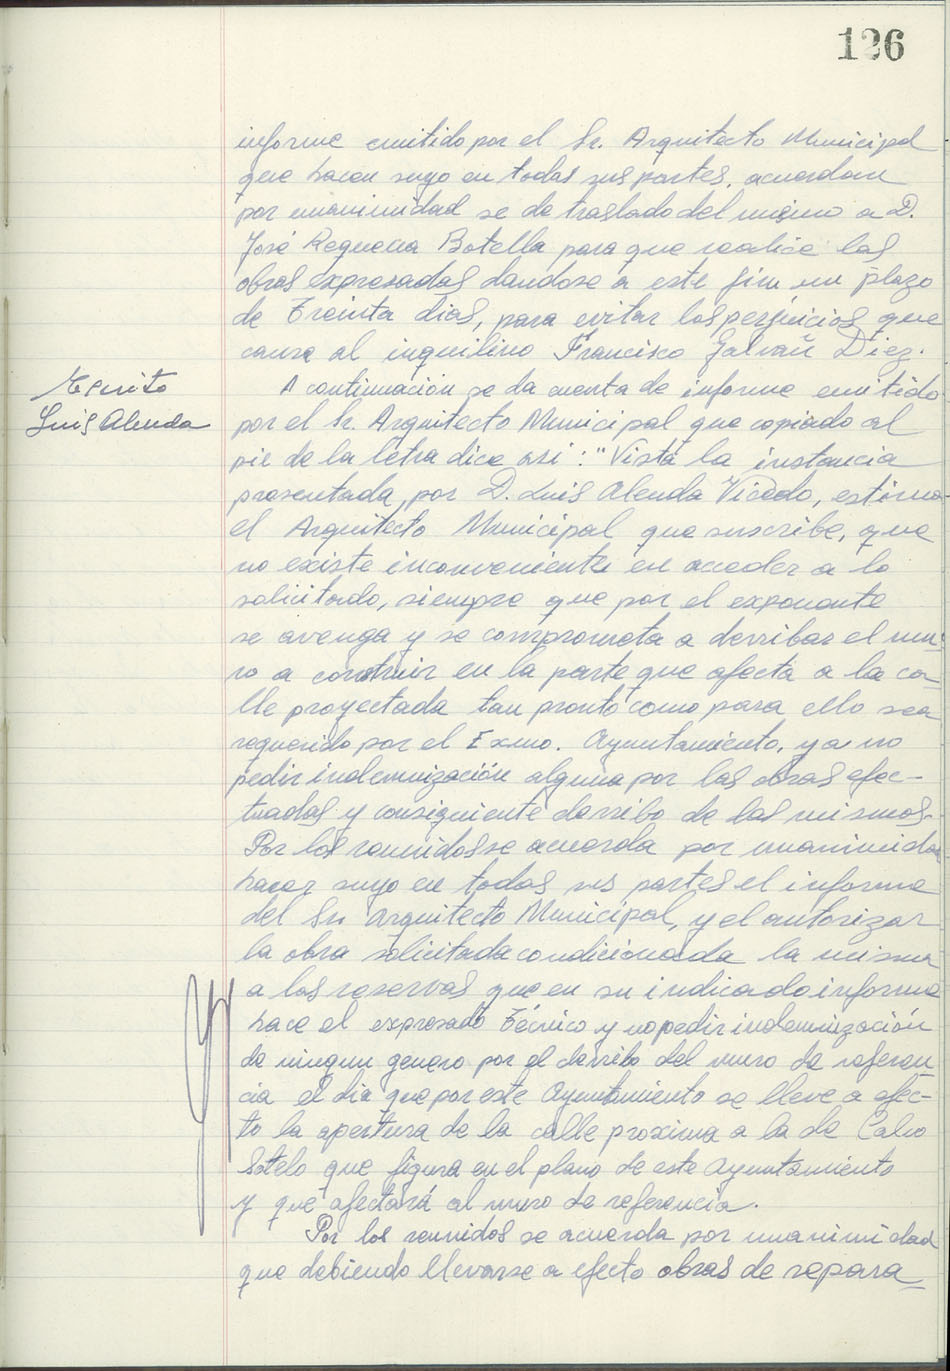 126
informe emitido por el Sr. Arquitecto Municipal
que hacen suyo en todas sus partes, acuerdan
por unanimidad se de traslado del mismo a D.
José Requena Botella para que realice las
obras expresadas dandose a este fin un plazo
de Treinta dias, para evitar los perjuicios que
causa al inquilino Francisco Galvañ Diez.
Escrito
Luis Alenda
A continuación se da cuenta de informe emitido
por el Sr. Arquitecto Municipal que copiado al
pie de la letra dice asi: "Vista la instancia
presentada, por D. Luis Alenda Vicedo, estima
el Arquitecto Municipal que suscribe, que
no existe inconveniente en acceder a lo
solicitado, siempre que por el exponente
se avenga y se comprometa a derribar el mu-
ro a construir en la parte que afecta a la ca-
lle proyectada tan pronto como para ello sea
requerido por el Exmo. Ayuntamiento, y a no
pedir indemnización alguna por las obras efec-
tuadas y consiguiente derribo de las mismas.
Por los reunidos se acuerda por unanimidad
hacer suyo en todas sus partes el informe
del Sr. Arquitecto Municipal, y el autorizar
la obra solicitada condicionada la misma
a las reservas que en su indicado informe
hace el expresado Técnico y no pedir indemnización
de ningun genero por el derribo del muro de referen-
cia el dia que por este Ayuntamiento se lleve a efec-
to la apertura de la calle proxima a la de Calvo
Sotelo que figura en el plano de este Ayuntamiento
y que afectará al muro de referencia.
Por los reunidos se acuerda por unanimidad
que debiendo llevarse a efecto obras de repara-